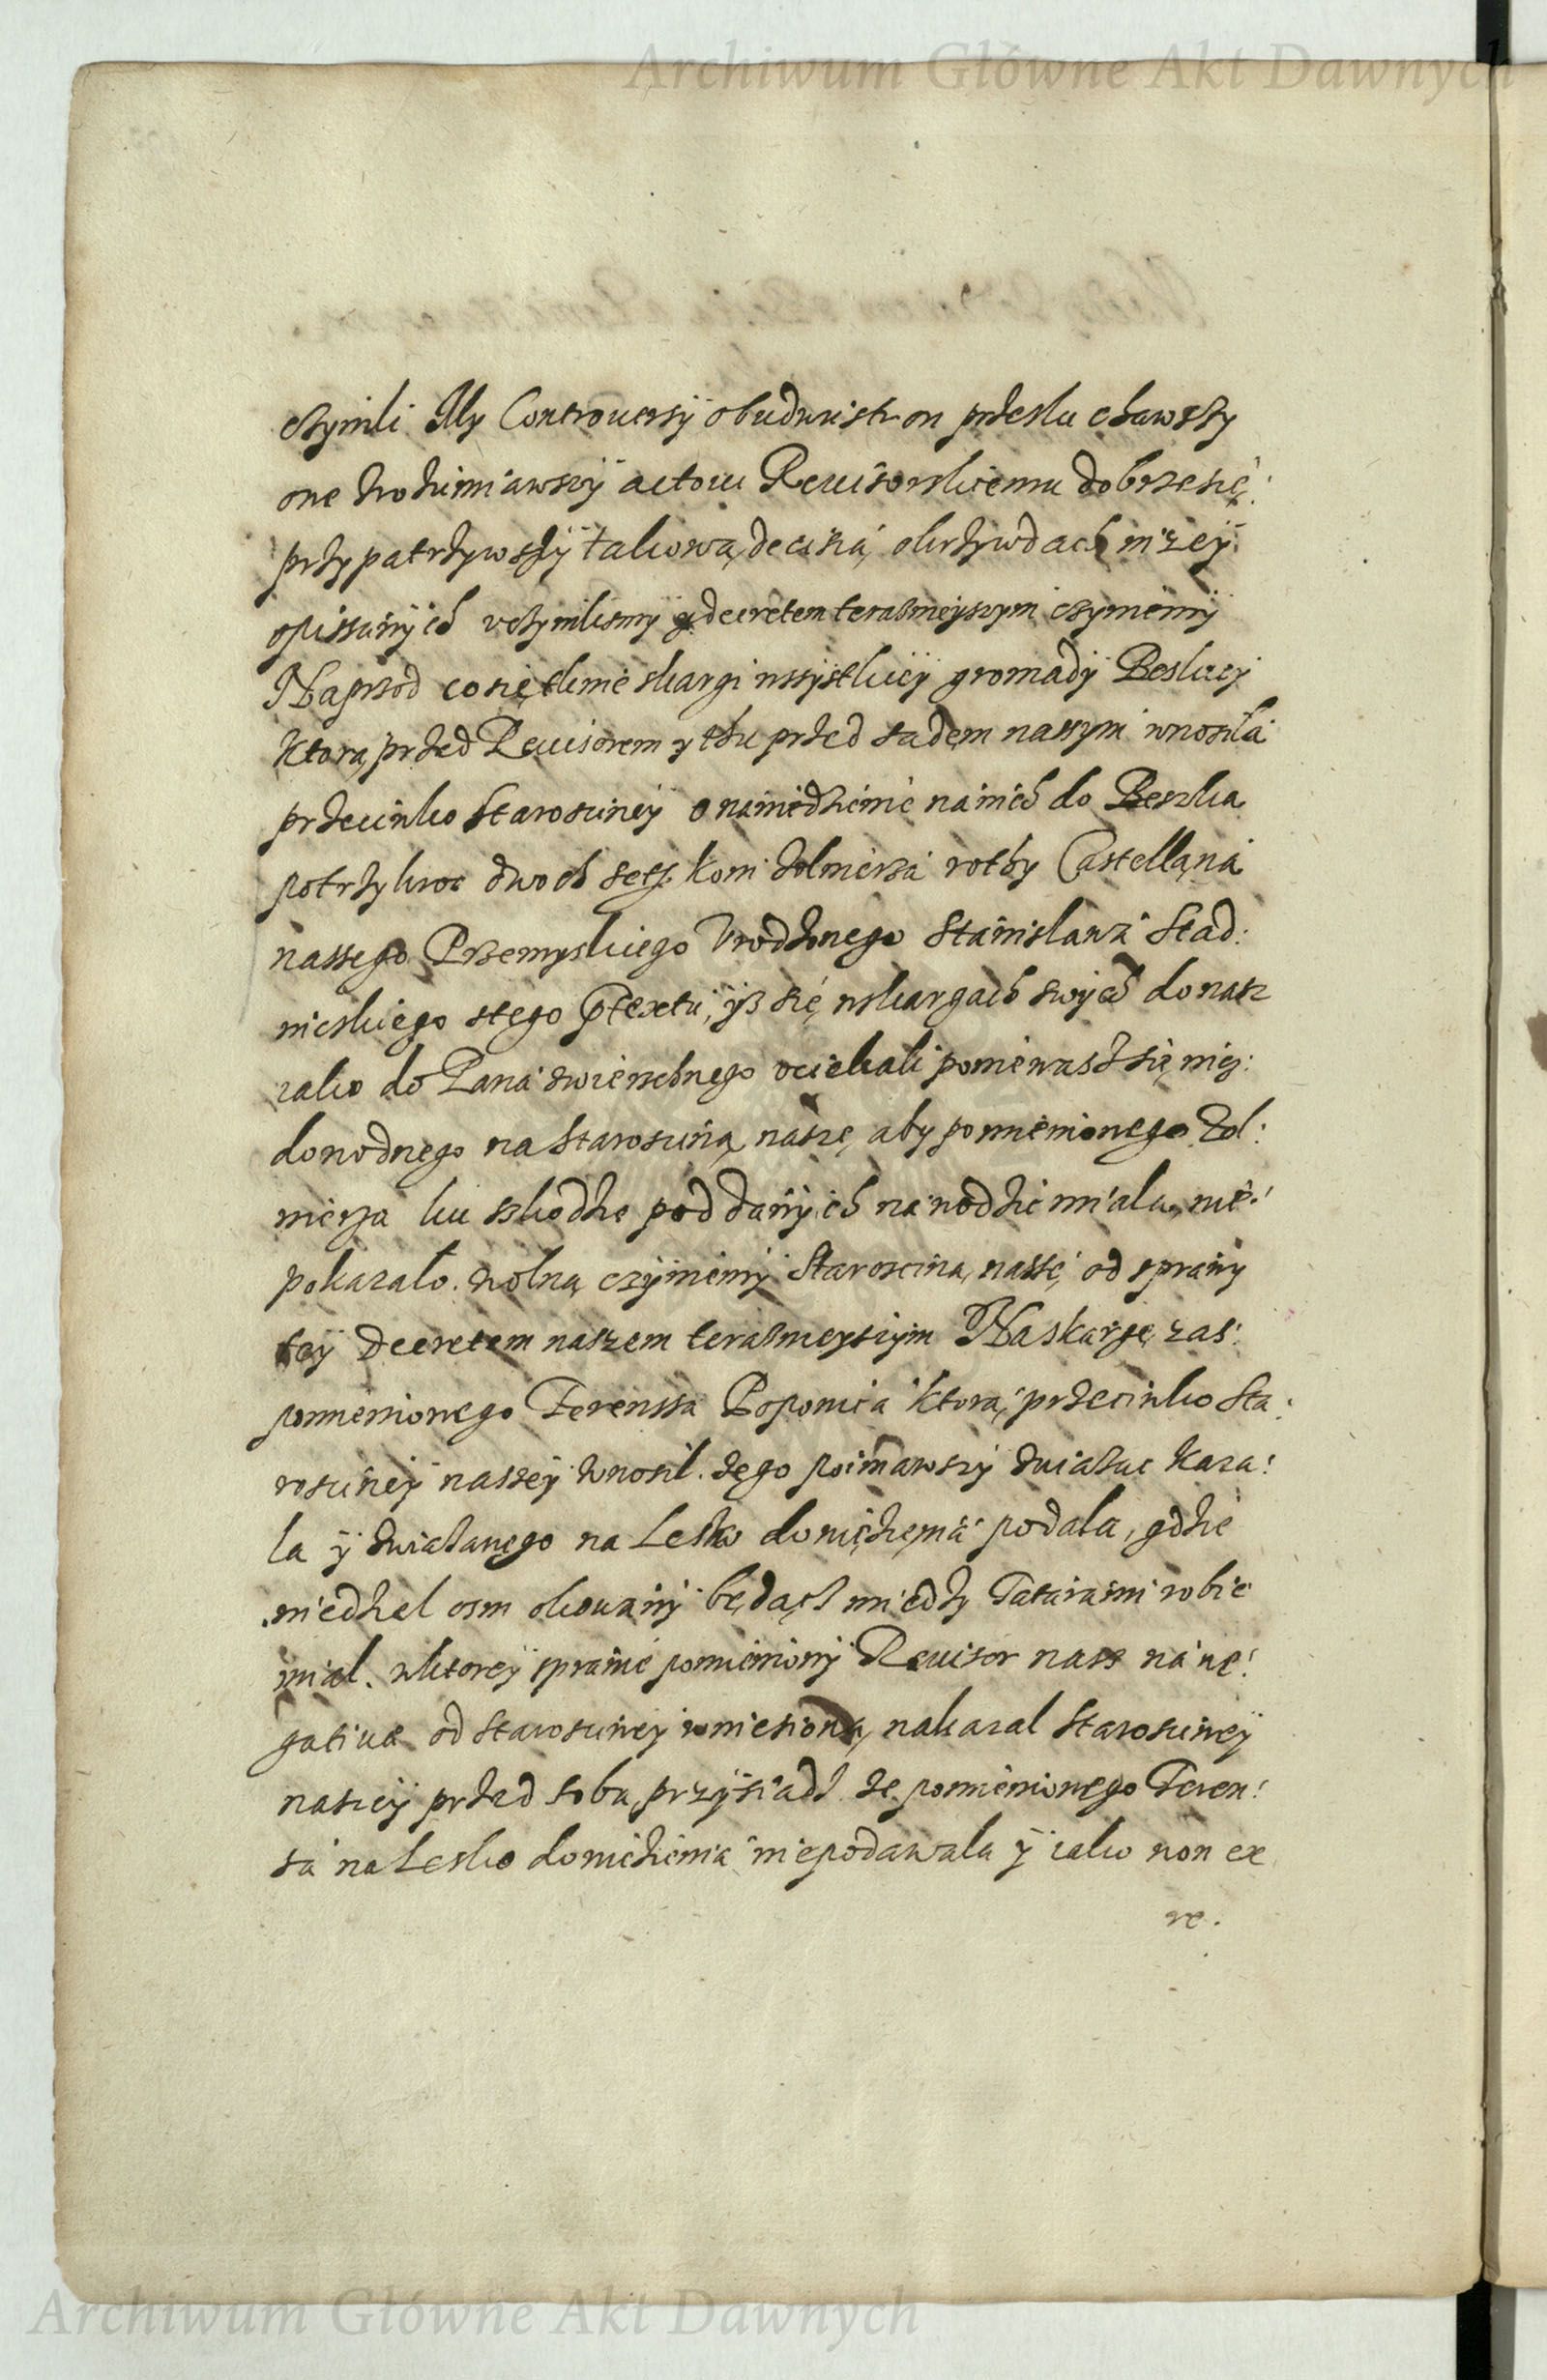 Archiwum Główne Akt Dawnych
czynili My Controuersÿ obudwustron przesłuchawszy
one zrozumiawszÿ actowi Reuisorskiemu dobrzesię
przypatrzÿwszÿ takową decisią okrzywdach nizeÿ
opissanÿch vczynilismÿ y decretem terazmeyszym czynimÿ
Naprzod cosię tknie skargi wssÿstkieÿ gromadÿ Beskieÿ
Którą przed Reuisorem y thu przed sądem naszym wnosiła
przeciwko Starosciney o nawiedzienie na nich do Beska
potrzykroc dwoch set koni zołnierza rothy Castellana
naszego Przemyskiego Vrodzonego Stanisława Stad:
nickiego stego Ptextu, ÿz się wskargach swÿch donasz
jako do Pana zwierzchnego vciekali poniewasz się nicz:
dowodnego na Staroscinę nassę aby pomienionego Zoł:
nierza ku szkodzie poddanÿch nawodzic miała, nie:
pokazało. Wolną czÿniemÿ Staroscinę nassę od sprawy
teÿ Decretem naszem terazmeyszÿm Na skargę zas:
pomienionego Ferenssa Popowica Którą przeciwko Sta:
rosciney nasseÿ wnosił. Jego poimawszÿ zwiazac kaza:
ła ÿ zwiazanego na Lesko dowięzienia podała, gdzie
niedziel osm okowanÿ będącz między Tatarami robic
miał. wktoreÿ sprawie pomienionÿ Reuisor nasz na ne:
gatiuę od Starosciney wniesioną, nakazał Starosciney
nasseÿ przed sobą przÿsiadz ze pomienionego Feren:
sa na Lesko dowiezienia niepodawała ÿ jako non ex
re.
Archiwum Główne Akt Dawnych